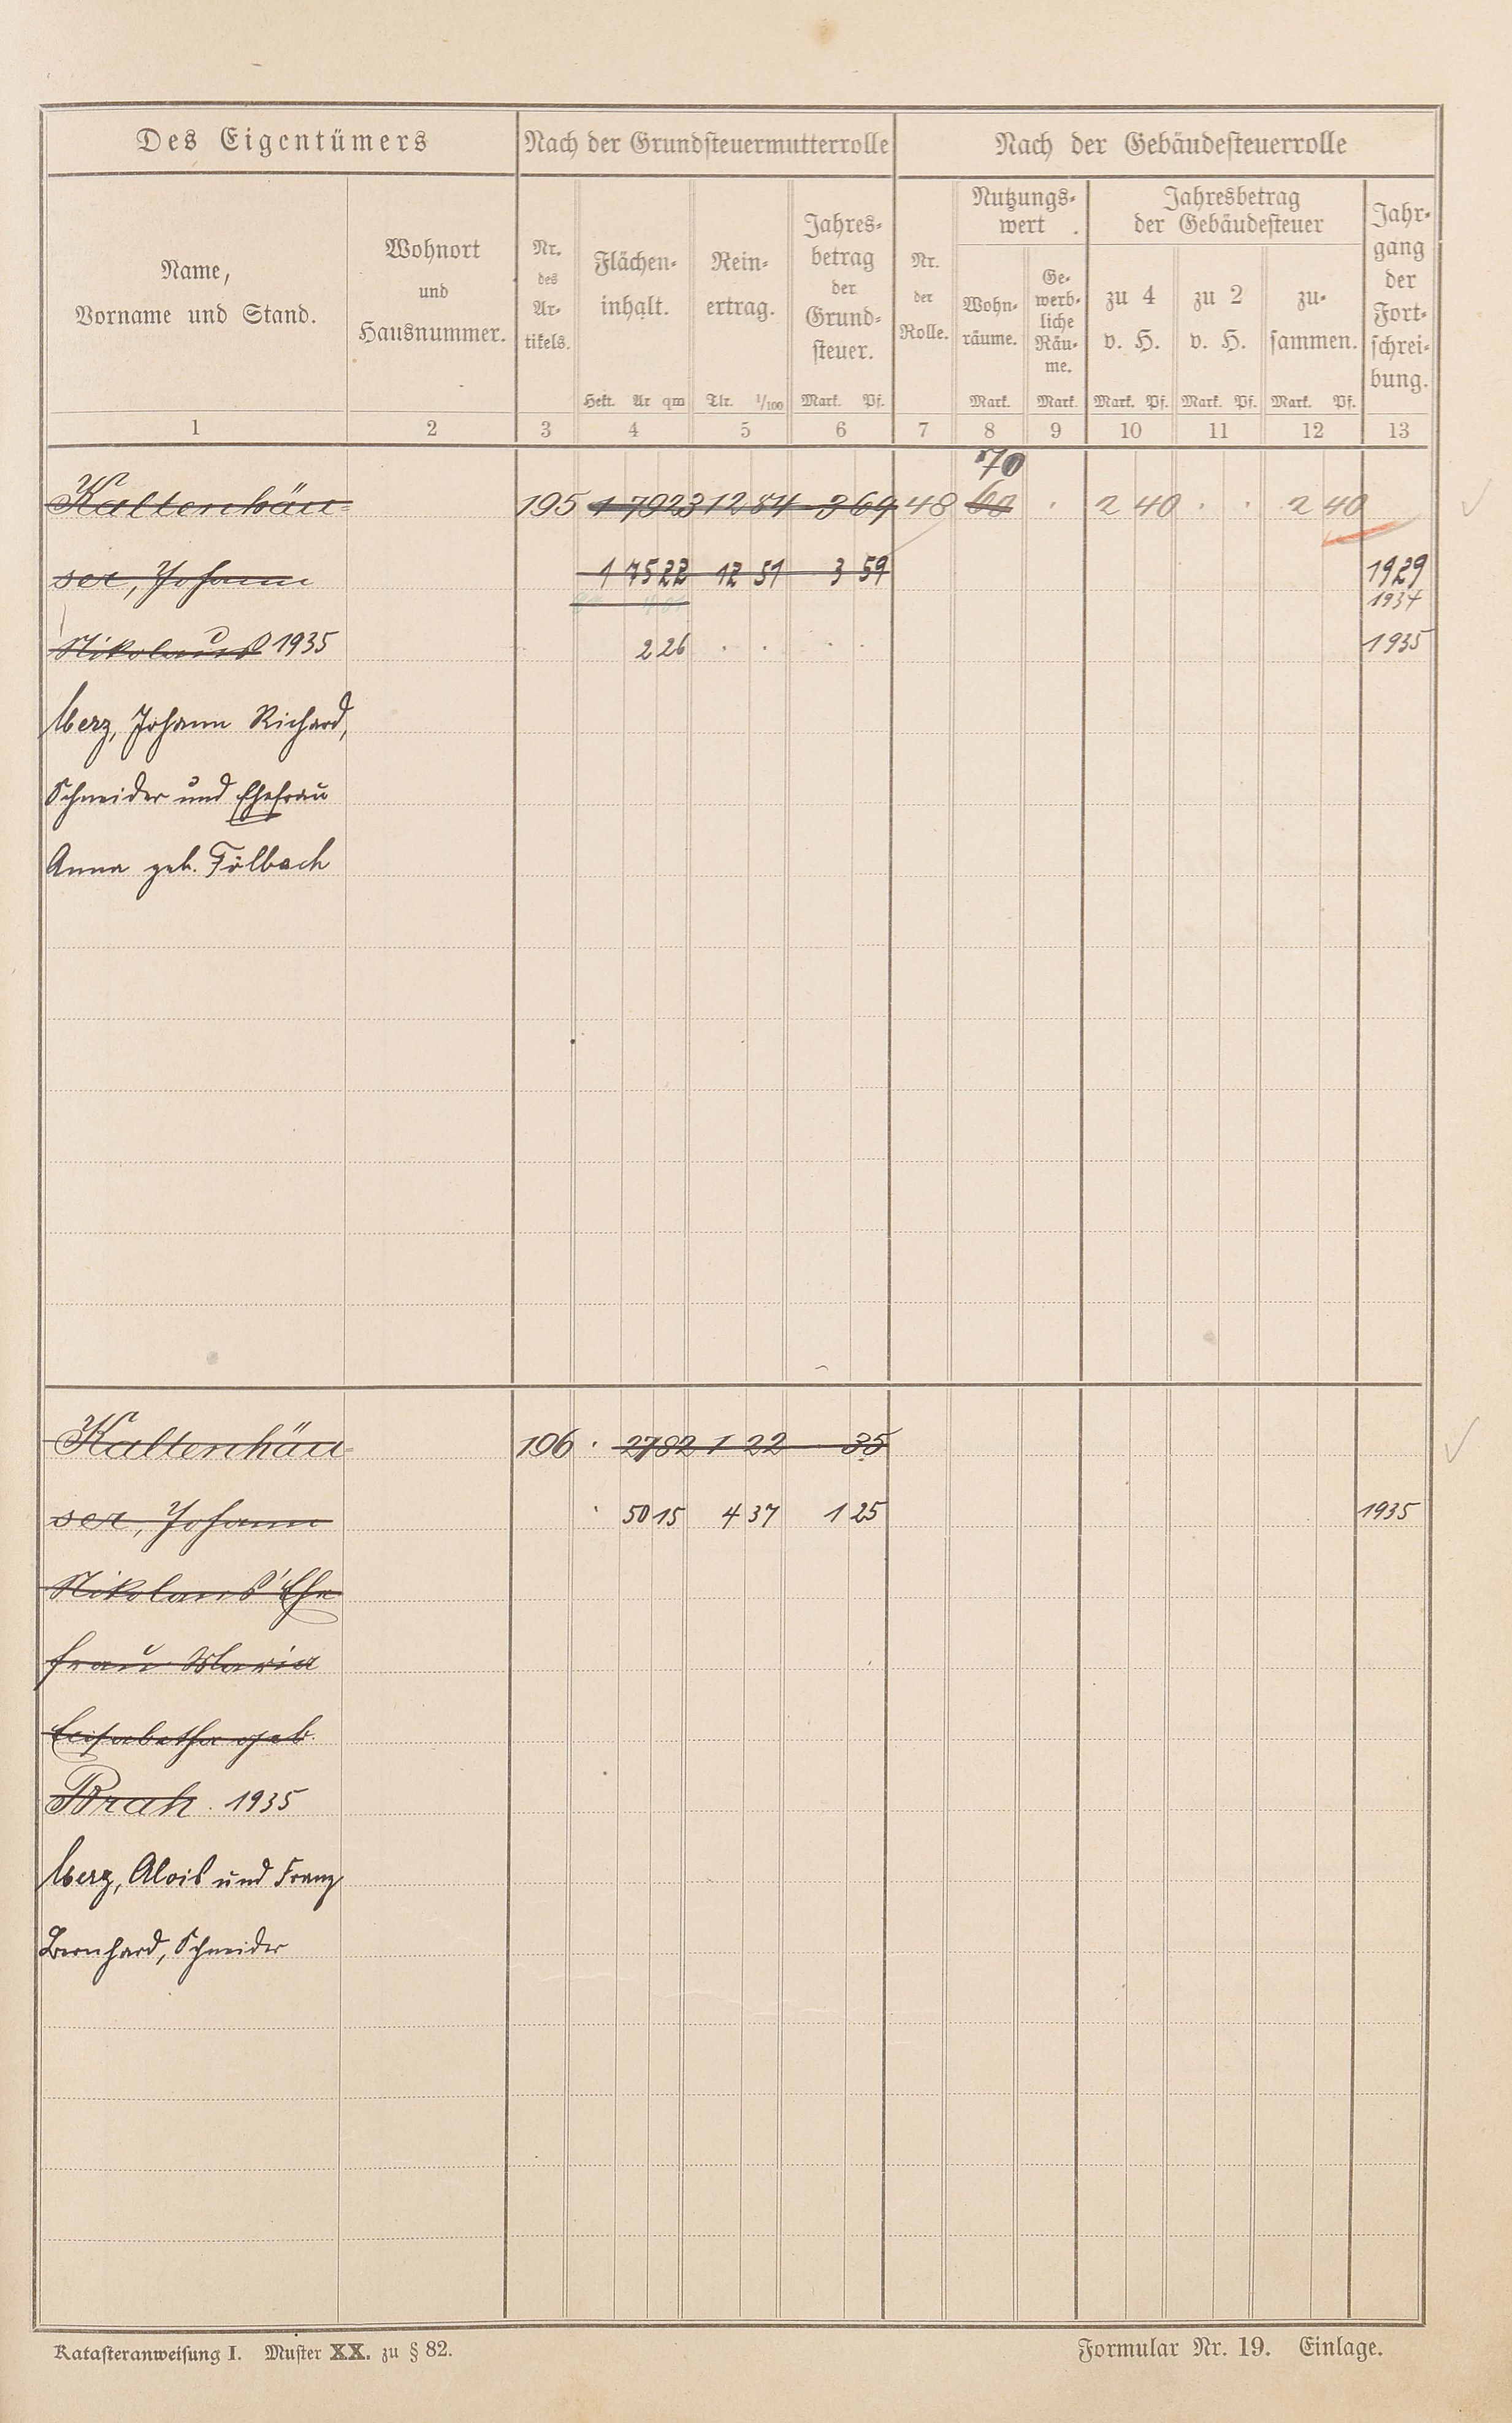 Des Eigentümers Nach der Grundsteuermutterrolle Nach der Gebäudesteuerrolle
Name,
Vorname und Stand.
Wohnort
und
Hausnummer.
Nr.
des
Ar-
tikels.
Flächen-
inhalt.
Hekt. Ar qm
Rein-
ertrag.
Tlr. 1/100
Jahres-
betrag
der
Grund-
steuer.
Mark. Pf.
Nr.
der
Rolle.
Nutzungs-
wert
Wohn-
räume.
Mark.
Ge-
werb-
liche
Räu-
me.
Mark.
Jahresbetrag
der Gebäudesteuer
zu 4
v. H.
Mark. Pf.
zu 2
v. H.
Mark. Pf.
zu-
sammen.
Mark. Pf.
Jahr-
gang
der
Fort-
schrei-
bung.
1 2 3 4 5 6 7 8 9 10 11 12 13
70
Kaltenhäu- 195 1 79 23 12 84 3 69 48 60 . 2 40 . . 2 40
ser, Johann 1 75 22 12 51 3 59 1929
1934
Nikolaus 1935 2 26 . . . . 1935
Merz, Johann Richard,
Schneider und Ehefrau
Anna geb. Fölbach
Kaltenhäu- 196 . 27 82 1 22 . 35
ser, Johann . 50 15 4 37 1 25 1935
Nikolaus' Ehe
frau Maria
Elisabetha geb.
Brah. 1935
Merz, Alois und Franz
Bernhard, Schneider
Katasteranweisung I. Muster XX. zu § 82. Formular Nr. 19. Einlage.